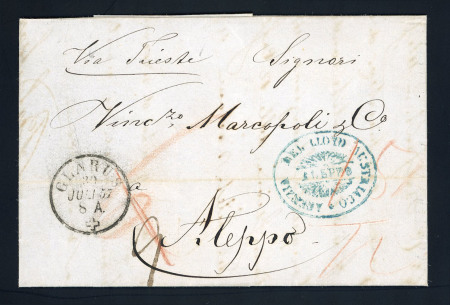 Via Trieste Signori
Vinczo Marcopoli & Co
GLARUS
JULI 57
8 A
DEL LLOYD AUSTRIACO
ALEPPO
AGENZIA
a
Aleppo